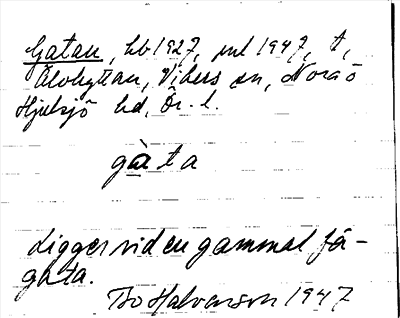 Gatan, hb 1927, ml 1947, t,
Älvhyttan, Vikers sn, Nora o
Hjulsjö hd, Ör. l.
gàta
Ligger vid en gammal få-
gata.
Bo Halvarson 1947